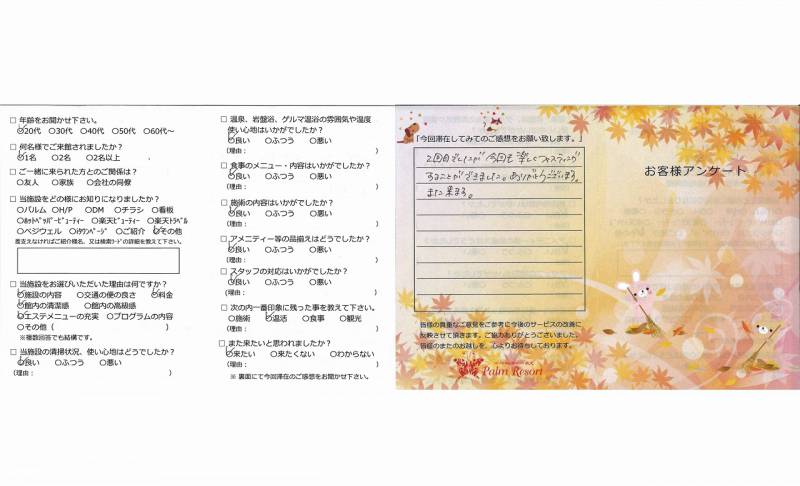 □ 年齢をお聞かせ下さい。
○20代 ○30代 ○40代 ○50代 ○60代～
□ 何名様でご来館されましたか?
○1名 ○2名 ○2名以上
□ ご一緒に来られた方とのご関係は?
○友人 ○家族 ○会社の同僚
□ 当施設をどの様にお知りになりましたか?
○パルム ○H/P ○DM ○チラシ ○看板
○ホットペッパービューティー ○楽天ビューティー ○楽天トラベル
○ベジウェル ○iタウンページ ○ご紹介 ○その他
差支えなければご紹介様名、又は検索ワードの詳細を教えて下さい。
□ 当施設をお選びいただいた理由は何ですか?
○施設の内容 ○交通の便の良さ ○料金
○館内の清潔感 ○館内の高級感
○エステメニューの充実 ○プログラムの内容
○その他 ( )
※複数回答でも結構です。
□ 当施設の清掃状況、使い心地はどうでしたか?
○良い ○ふつう ○悪い
(理由: )
□ 温泉、岩盤浴、ゲルマ温浴の雰囲気や温度
使い心地はいかがでしたか?
○良い ○ふつう ○悪い
(理由: )
□ 食事のメニュー・内容はいかがでしたか?
○良い ○ふつう ○悪い
(理由: )
□ 施術の内容はいかがでしたか?
○良い ○ふつう ○悪い
(理由: )
□ アメニティー等の品揃えはどうでしたか?
○良い ○ふつう ○悪い
(理由: )
□ スタッフの対応はいかがでしたか?
○良い ○ふつう ○悪い
(理由: )
□ 次の内一番印象に残った事を教えて下さい。
○施術 ○温活 ○食事 ○観光
□ また来たいと思われましたか?
○来たい ○来たくない ○わからない
(理由: )
※ 裏面にて今回滞在のご感想をお聞かせ下さい。
「今回滞在してみてのご感想をお願い致します。」
2回目でしたが 今回も楽しくファスティング
することができました。ありがとうございます。
また来ます。
皆様の貴重なご意見をご参考に今後のサービスの改善に
反映させて頂きます。ご協力ありがとうございました。
皆様のまたのお越しを、心よりお待ちしております。
Palm Resort
お客様アンケート